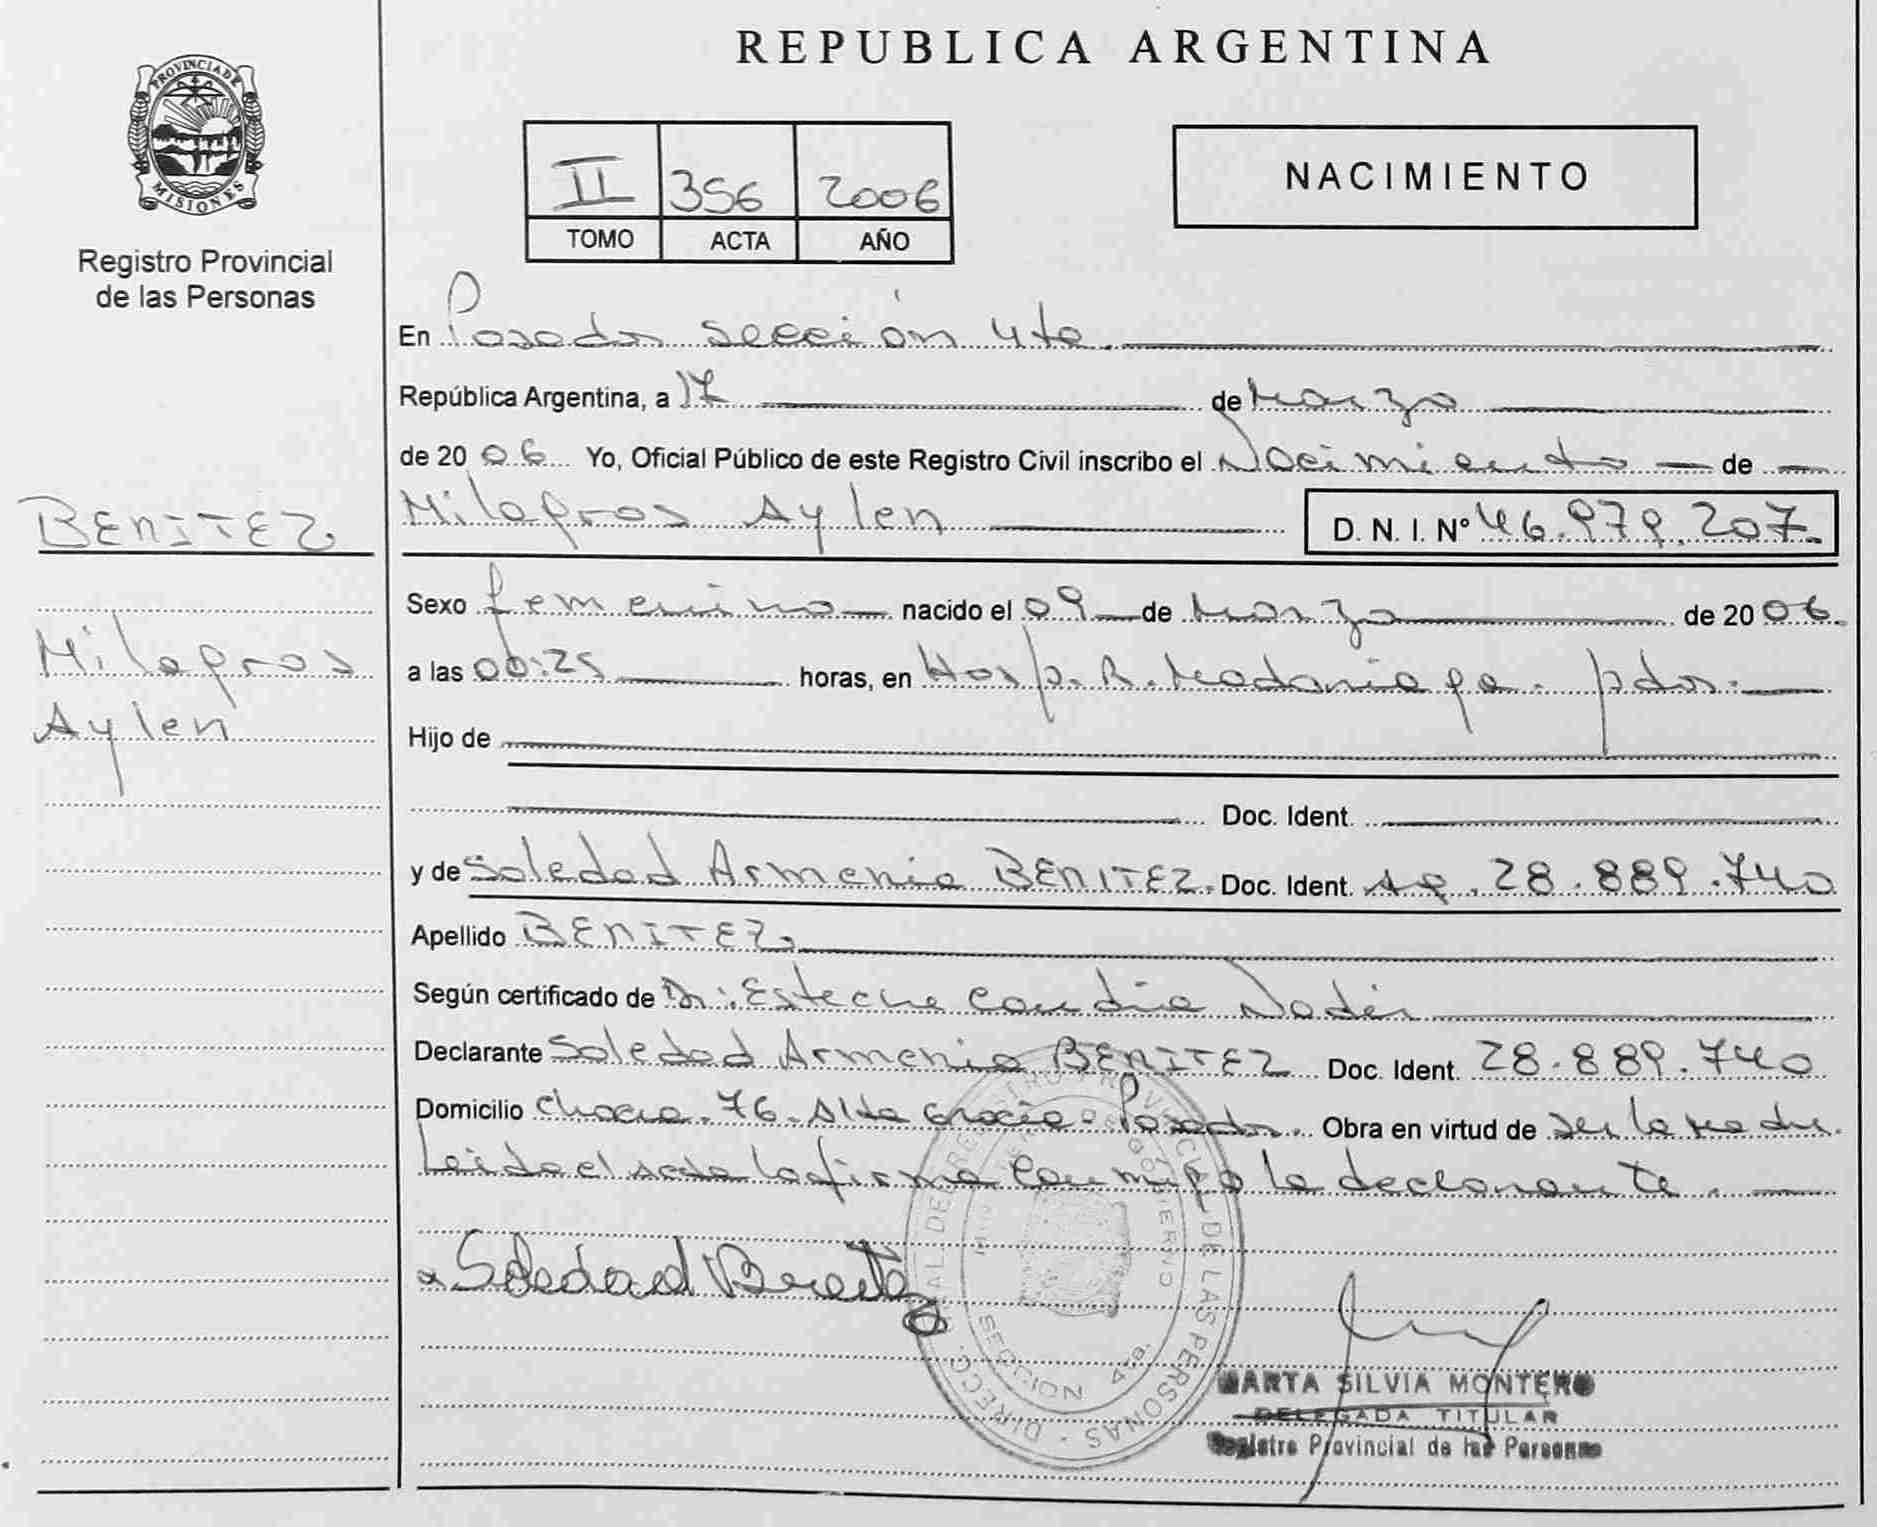 REPUBLICA ARGENTINA
PROVINCIA DE MISIONES
Registro Provincial
de las Personas
II 356 2006
TOMO ACTA AÑO
NACIMIENTO
En Posadas sección 4ta.
República Argentina, a 17 de Marzo
de 2006 Yo, Oficial Público de este Registro Civil inscribo el Nacimiento de
BENITEZ
Milagros Aylen D. N. I. Nº 46.979.207.
Sexo femenino nacido el 09 de Marzo de 2006.
Milagros
Aylen
a las 00:25 horas, en Hosp. R. Madariaga. pdas.
Hijo de
Doc. Ident.
y de Soledad Armenia BENITEZ. Doc. Ident. 28.889.740
Apellido BENITEZ.
Según certificado de Dr: Esteche Nader
Declarante Soledad Armenia BENITEZ Doc. Ident. 28.889.740
Domicilio Chacra. 76. Alta Gracia. Posadas. Obra en virtud de ser la Madre.
Leida el acta la firma conmigo la declarante.
Soledad Benitez
DIRECC. GRAL DE REGISTRO PROVINCIAL DE LAS PERSONAS
SECCION 4ta.
MARTA SILVIA MONTERO
DELEGADA TITULAR
Registro Provincial de las Personas